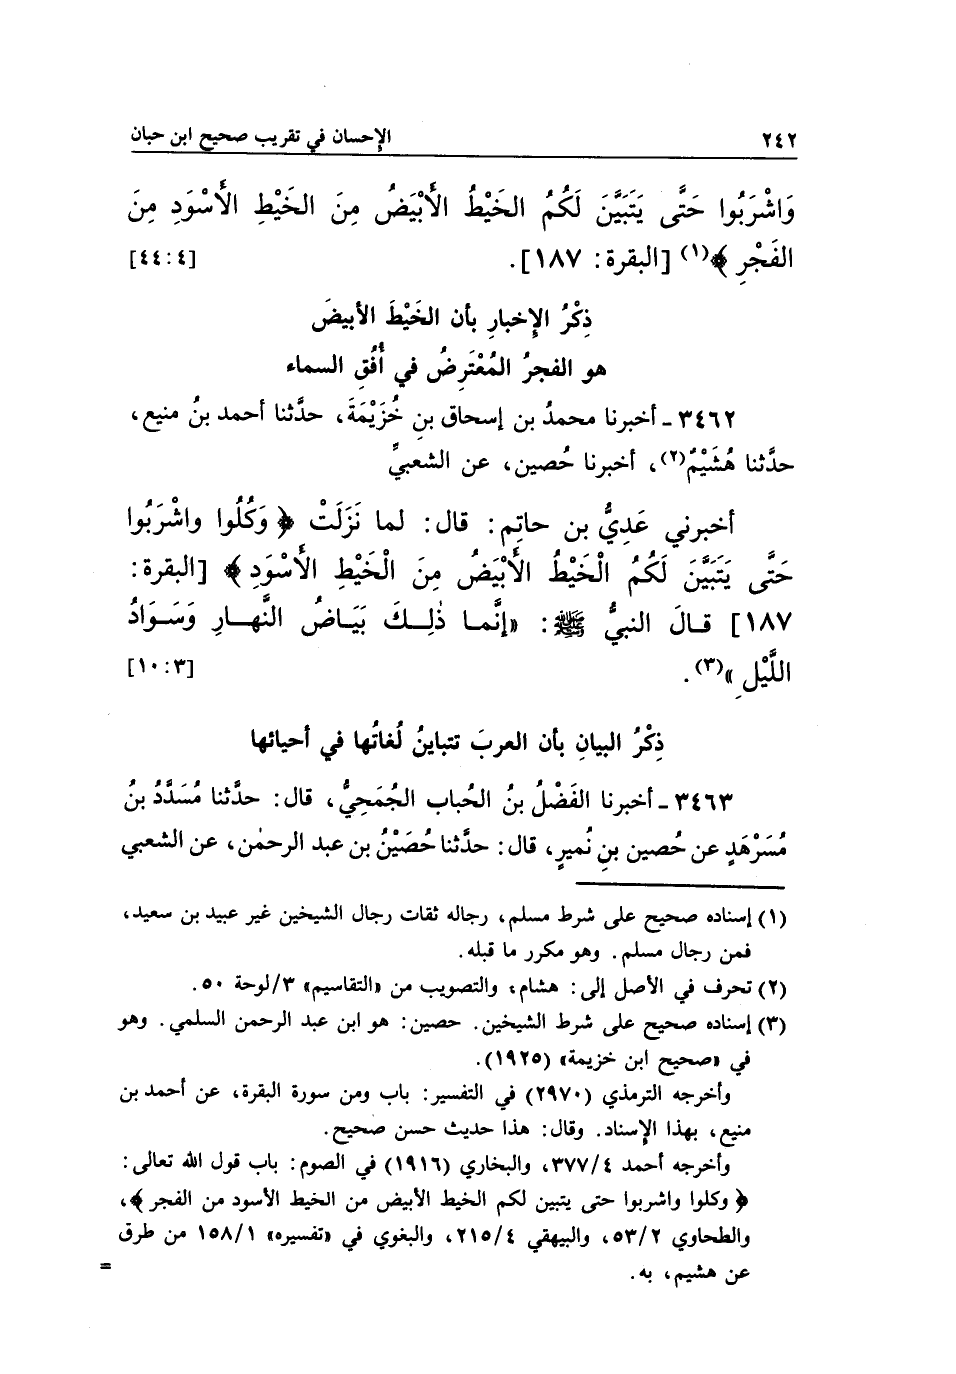 ٢٤٢ الإحسان في تقريب صحيح ابن حبان
وَاشْرَبُوا حَتَّى يَتَبَيَّنَ لَكُمُ الخَيْطُ الأَبْيَضُ مِنَ الخَيْطِ الأَسْوَدِ مِنَ
الفَجْرِ ﴾(١) [البقرة: ١٨٧]. [٤٤:٤]
ذِكْرُ الإِخبارِ بأن الخَيْطَ الأبيضَ
هو الفجرُ المُعْتَرِضُ في أُفُقِ السماء
٣٤٦٢ ـ أخبرنا محمدُ بن إسحاق بنِ خُزَيْمَةَ، حدَّثنا أحمد بنُ منيع،
حدَّثنا هُشَيْمٌ(٢)، أخبرنا حُصين، عن الشعبيِّ
أخبرني عَدِيُّ بن حاتِم: قال: لما نَزَلَتْ ﴿ وَكُلُوا واشْرَبُوا
حَتَّى يَتَبَيَّنَ لَكُمُ الْخَيْطُ الأَبْيَضُ مِنَ الْخَيْطِ الأَسْوَدِ﴾ [البقرة:
١٨٧] قـالَ النبيُّ ﷺ: «إنَّمـا ذٰلِـكَ بَيَـاضُ النَّهـارِ وَسَـوَادُ
اللَّيْلِ »(٣). [١٠:٣]
ذِكْرُ البيانِ بأن العربَ تتباينُ لُغاتُها في أحيائها
٣٤٦٣ ـ أخبرنا الفَضْلُ بنُ الحُباب الجُمَحِيُّ، قال: حدَّثنا مُسَدَّدُ بنُ
مُسَرْهَدٍ عن حُصين بنِ نُميرٍ، قال: حدَّثنا حُصَيْنُ بن عبد الرحمٰن، عن الشعبي
(١) إسناده صحيح على شرط مسلم، رجاله ثقات رجال الشيخين غير عبيد بن سعيد،
فمن رجال مسلم. وهو مكرر ما قبله.
(٢) تحرف في الأصل إلى: هشام، والتصويب من «التقاسيم» ٣/لوحة ٥٠.
(٣) إسناده صحيح على شرط الشيخين. حصين: هو ابن عبد الرحمن السلمي. وهو
في «صحيح ابن خزيمة» (١٩٢٥).
وأخرجه الترمذي (٢٩٧٠) في التفسير: باب ومن سورة البقرة، عن أحمد بن
منيع، بهذا الإسناد. وقال: هذا حديث حسن صحيح.
وأخرجه أحمد ٣٧٧/٤، والبخاري (١٩١٦) في الصوم: باب قول الله تعالى:
﴿ وكلوا واشربوا حتى يتبين لكم الخيط الأبيض من الخيط الأسود من الفجر ﴾،
والطحاوي ٥٣/٢، والبيهقي ٢١٥/٤، والبغوي في «تفسيره» ١٥٨/١ من طرق
عن هشيم، به. =